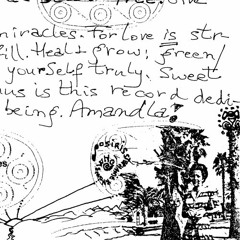 miracles. For love is str
fill. Heal & grow; green/
yourself truly. Sweet
us is this record dedi-
being. Amandla!